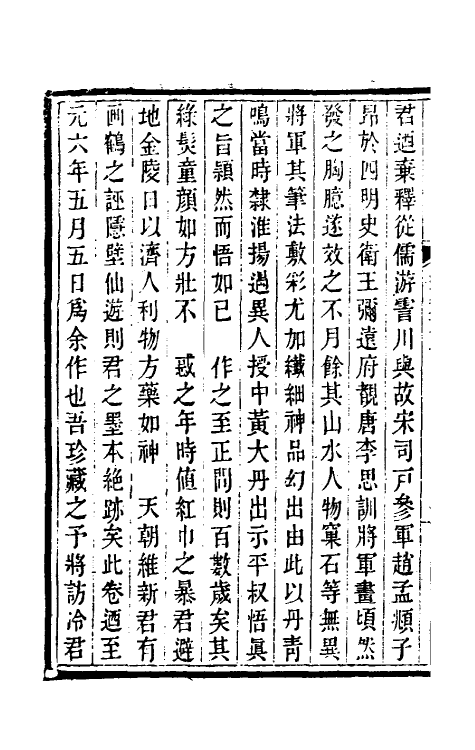 君迺棄釋從儒游霅川與故宋司戸參軍趙孟頫子
昂於四明史衛王彌遠府覩唐李思訓將軍畫頃然
發之胸臆遂效之不月餘其山水人物窠石等無異
將軍其筆法敷彩尤加纖細神品幻出由此以丹青
鳴當時隸淮揚遇異人授中黃大丹出示平叔悟眞
之旨頴然而悟如已　作之至正間則百數歳矣其
綠髮童顔如方壯不　惑之年時值紅巾之暴君避
地金陵日以濟人利物方藥如神　天朝維新君有
画鶴之誣隱壁仙遊則君之墨本絶跡矣此卷迺至
元六年五月五日爲余作也吾珍藏之予將訪冷君